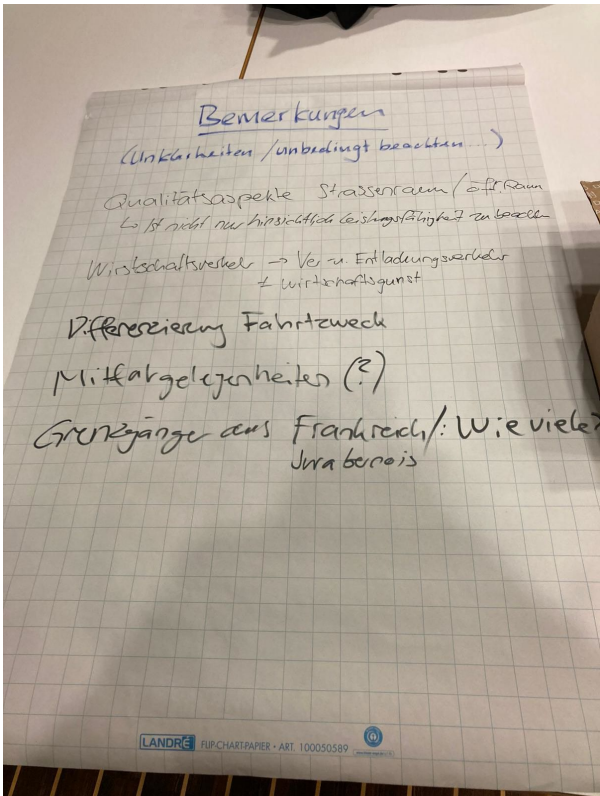 Bemerkungen
(Unklarheiten / unbedingt beachten...)
Qualitätsaspekte Strassenraum / öff. Raum
↳ Ist nicht nur hinsichtlich Leistungsfähigkeit zu beachten
Wirtschaftsverkehr → Ver u. Entladungsverkehr
≠ Wirtschaftsgunst
Differenzierung Fahrtzweck
Mitfahrgelegenheiten (?)
Grenzgänger aus Frankreich/: Wie viele?
Jura bernois
LANDRÉ FLIP-CHART-PAPIER • ART. 100050589